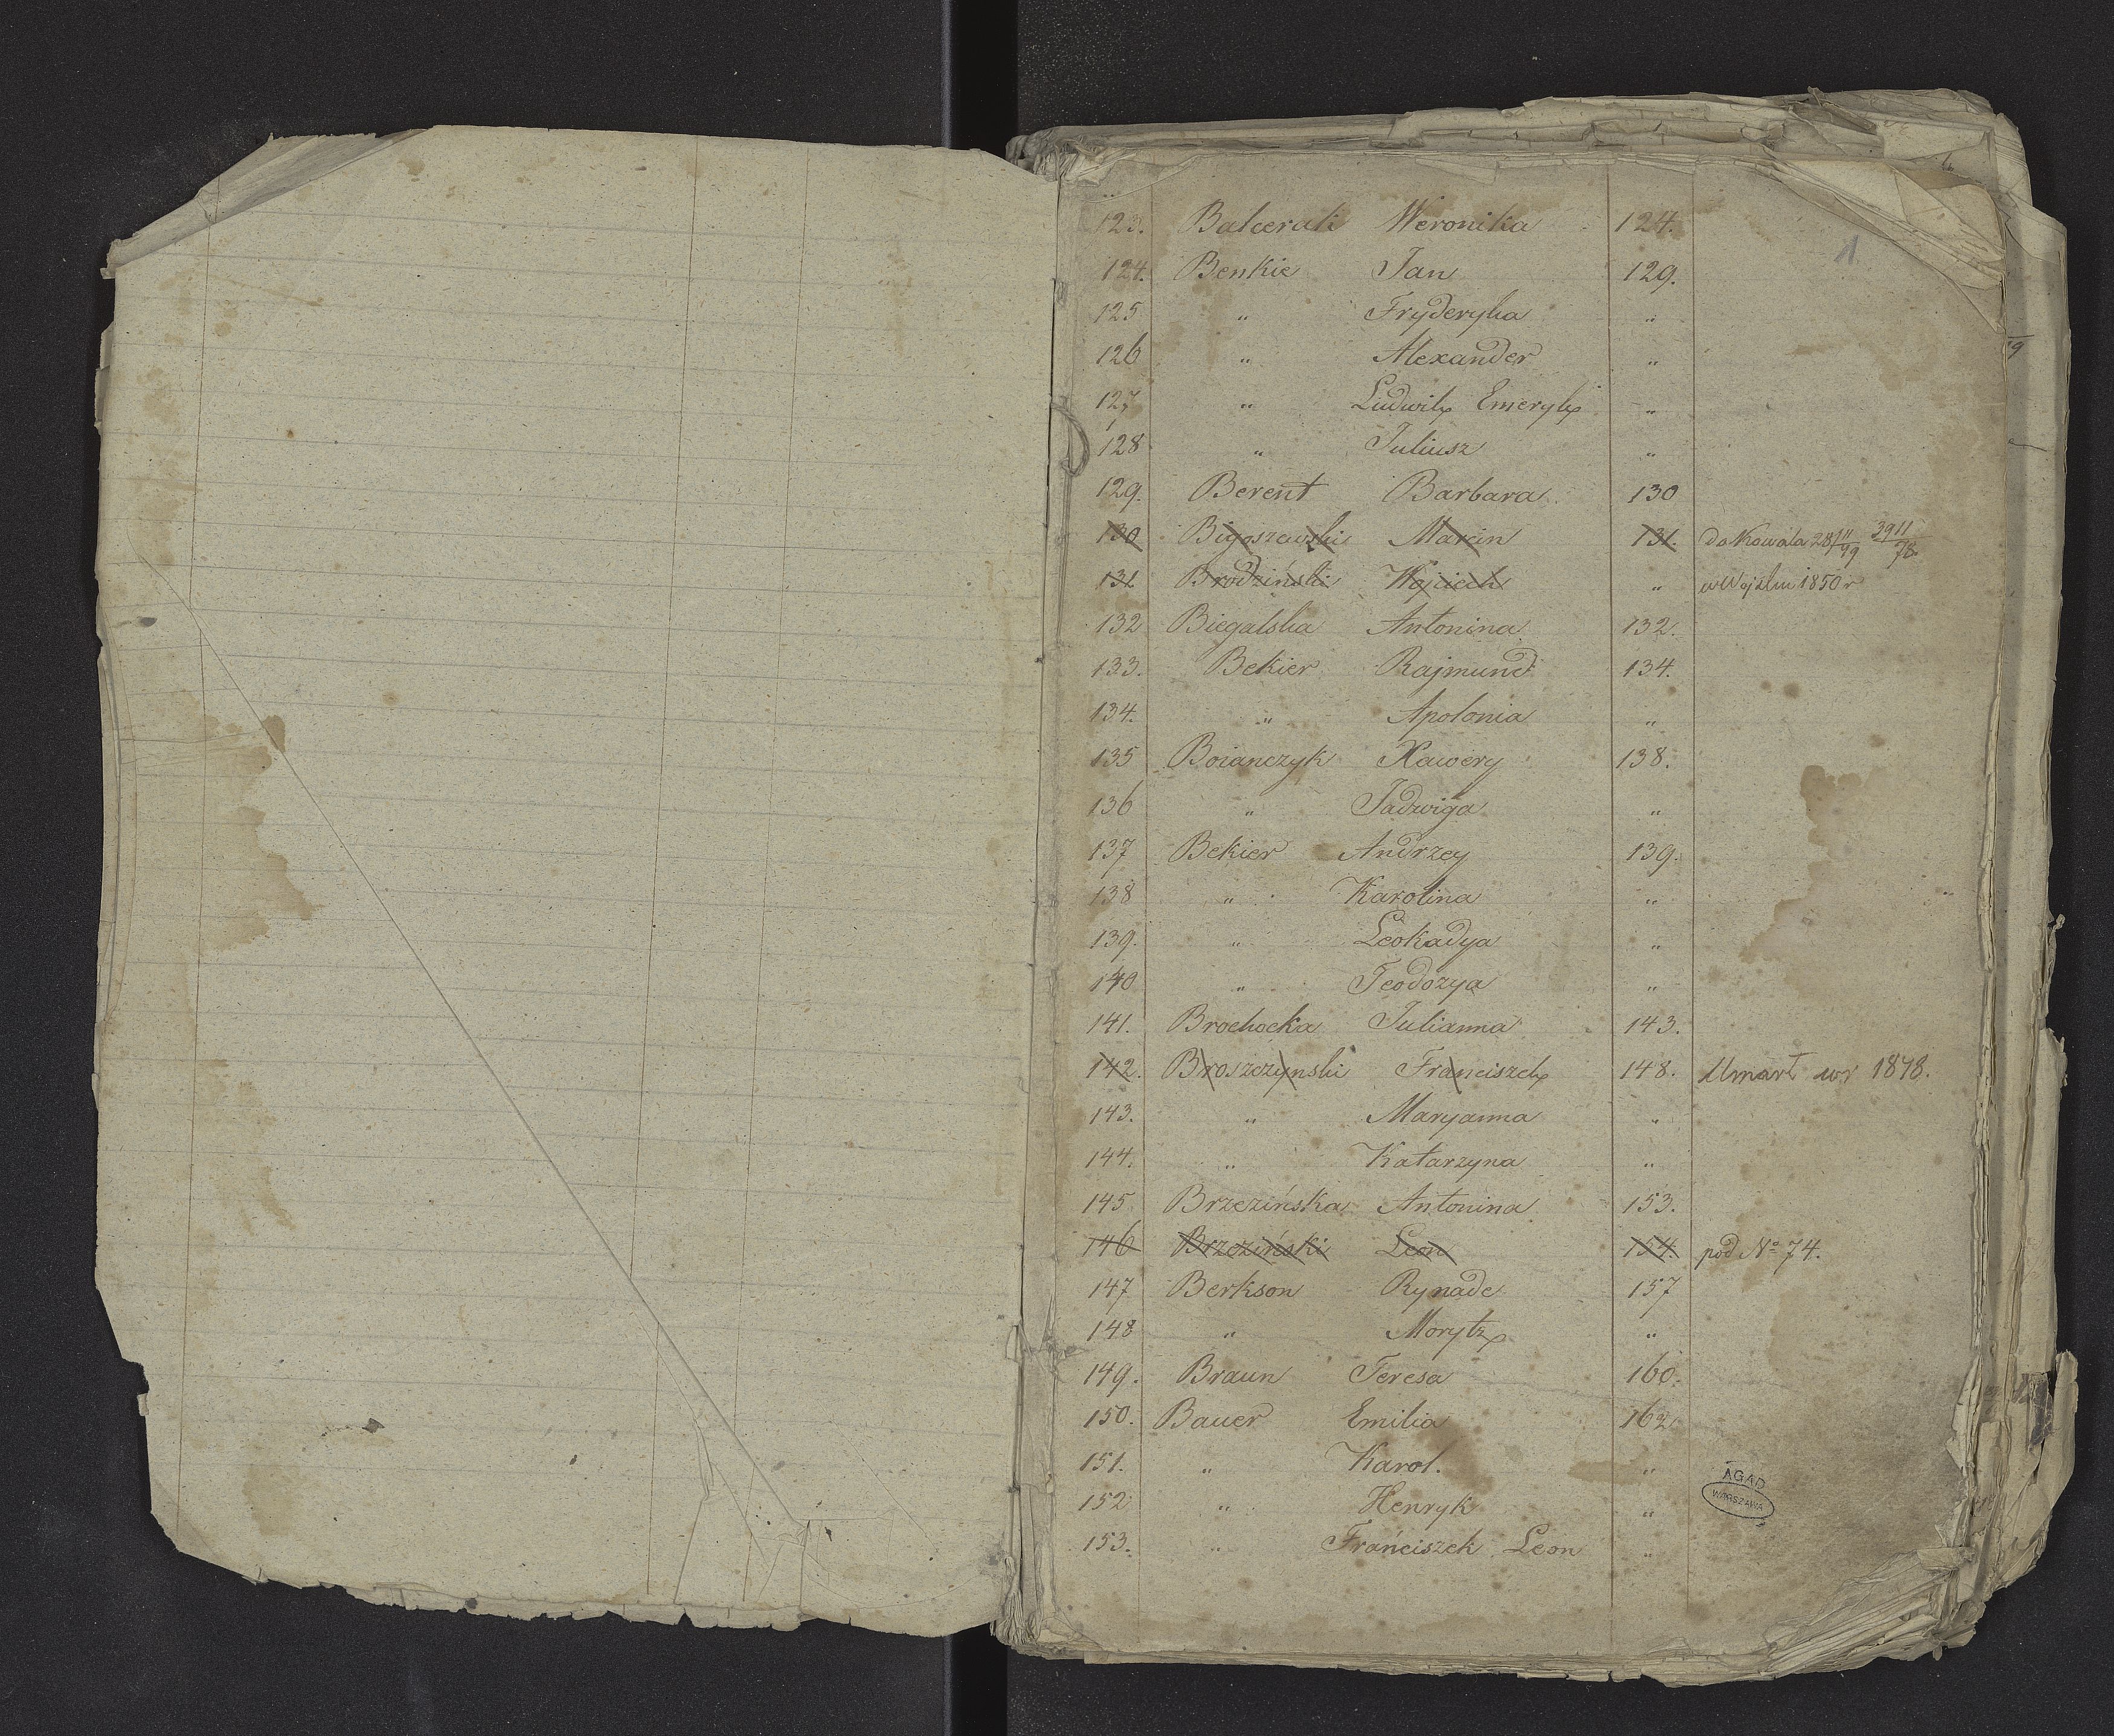 1
123. Balcerak Weronika 124.
124. Benkie Jan 129.
125 " Fryderyka "
126 " Alexander "
127 " Ludwik Emeryk "
128 " Juliusz "
129. Berent Barbara 130
130 Bigoszewski Marcin 131. do Kowala 28/11 49 3911/78
131 Brodziński Wojciech " w 1850 r
132 Biegalska Antonina 132.
133. Bekier Rajmund 134.
134. " Apolonia "
135 Boianczyk Xawery 138.
136 " Jadwiga "
137 Bekier Andrzey 139.
138 " Karolina "
139. " Leokadya "
140 " Teodozya "
141. Brochocka Julianna 143.
142. Broszczynski Franciszek 148. Umarł wr 1848.
143. " Maryanna "
144. " Katarzyna "
145 Brzezińska Antonina 153.
146 Brzeziński Leon 154. pod No 74.
147 Berkson Rynade 157
148 " Morytz "
149. Braun Teresa 160.
150. Bauer Emilia 162
151. " Karol. "
152 " Henryk "
153. " Franciszek Leon "
AGAD
WARSZAWA